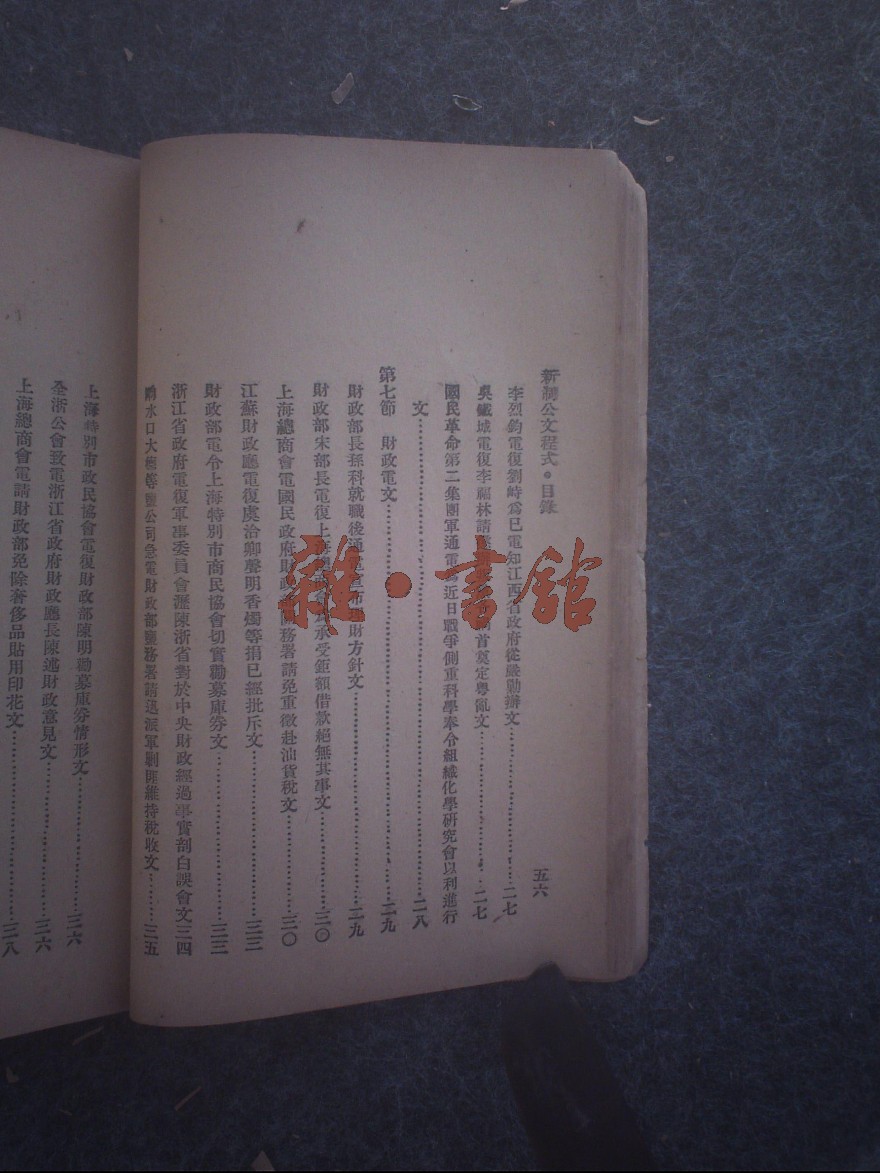 新制公文程式·目錄
五六
李烈鈞電復劉峙爲已電知江西省政府從嚴勦辦文……二七
吳鐵城電復李福林請 首奠定粵亂文……二七
國民革命第二集團軍通電爲近日戰爭側重科學奉令組織化學硏究會以利進行
文……二八
第七節 財政電文……二九
財政部長孫科就職後通電宣布理財方針文……二九
財政部宋部長電復上海 承受鉅額借款絕無其事文……三〇
上海總商會電國民政府財政部 務署請免重徵赴汕貨稅文……三〇
江蘇財政廳電復虞洽卿聲明香燭等捐已經批斥文……三三
財政部電令上海特別市商民協會切實勸募庫券文……三三
浙江省政府電復軍事委員會瀝陳浙省對於中央財政經過事實剖白誤會文三四
水口大 等鹽公司急電財政部鹽務署請迅派軍剿匪維持稅收文……三五
上海特別市政民協會電復財政部陳明勸募庫券情形文……三六
全浙公會致電浙江省政府財政廳長陳述財政意見文……三六
上海總商會電請財政部免除奢侈品貼用印花文……三八
雜·書館